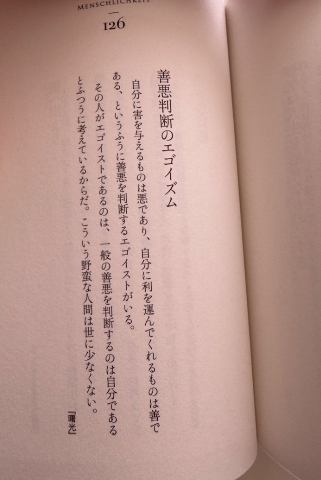 MENSCHLICHKEIT
126
善悪判断のエゴイズム
自分に害を与えるものは悪であり、自分に利を運んでくれるものは善で
ある、というふうに善悪を判断するエゴイストがいる。
その人がエゴイストであるのは、一般の善悪を判断するのは自分である
とふつうに考えているからだ。こういう野蛮な人間は世に少なくない。
『曙光』